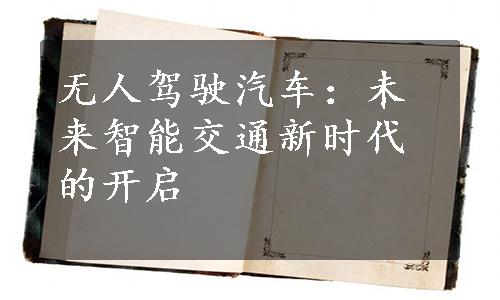 无人驾驶汽车：未
来智能交通新时代
的开启